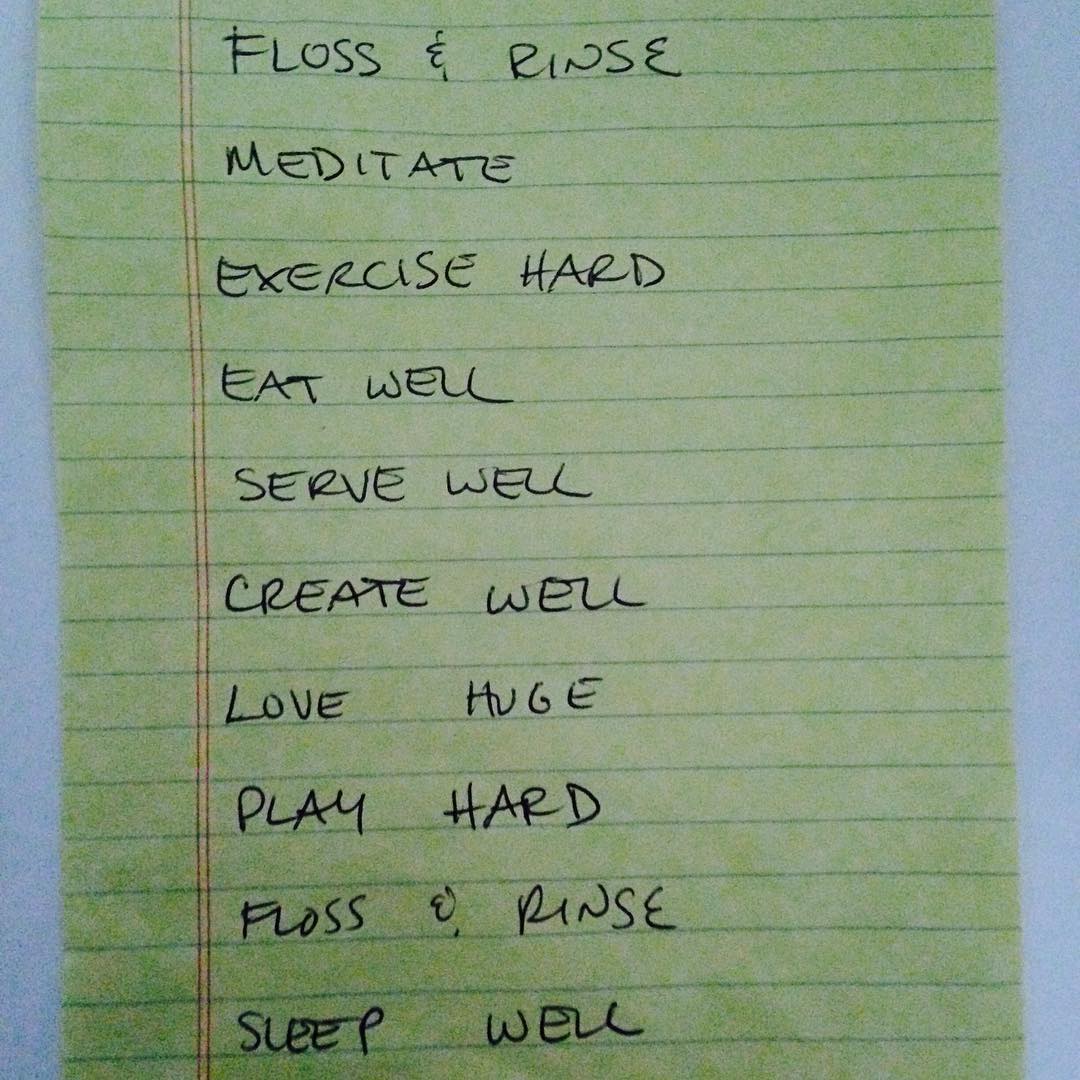 FLOSS & RINSE
MEDITATE
EXERCISE HARD
EAT WELL
SERVE WELL
CREATE WELL
LOVE HUGE
PLAY HARD
FLOSS & RINSE
SLEEP WELL